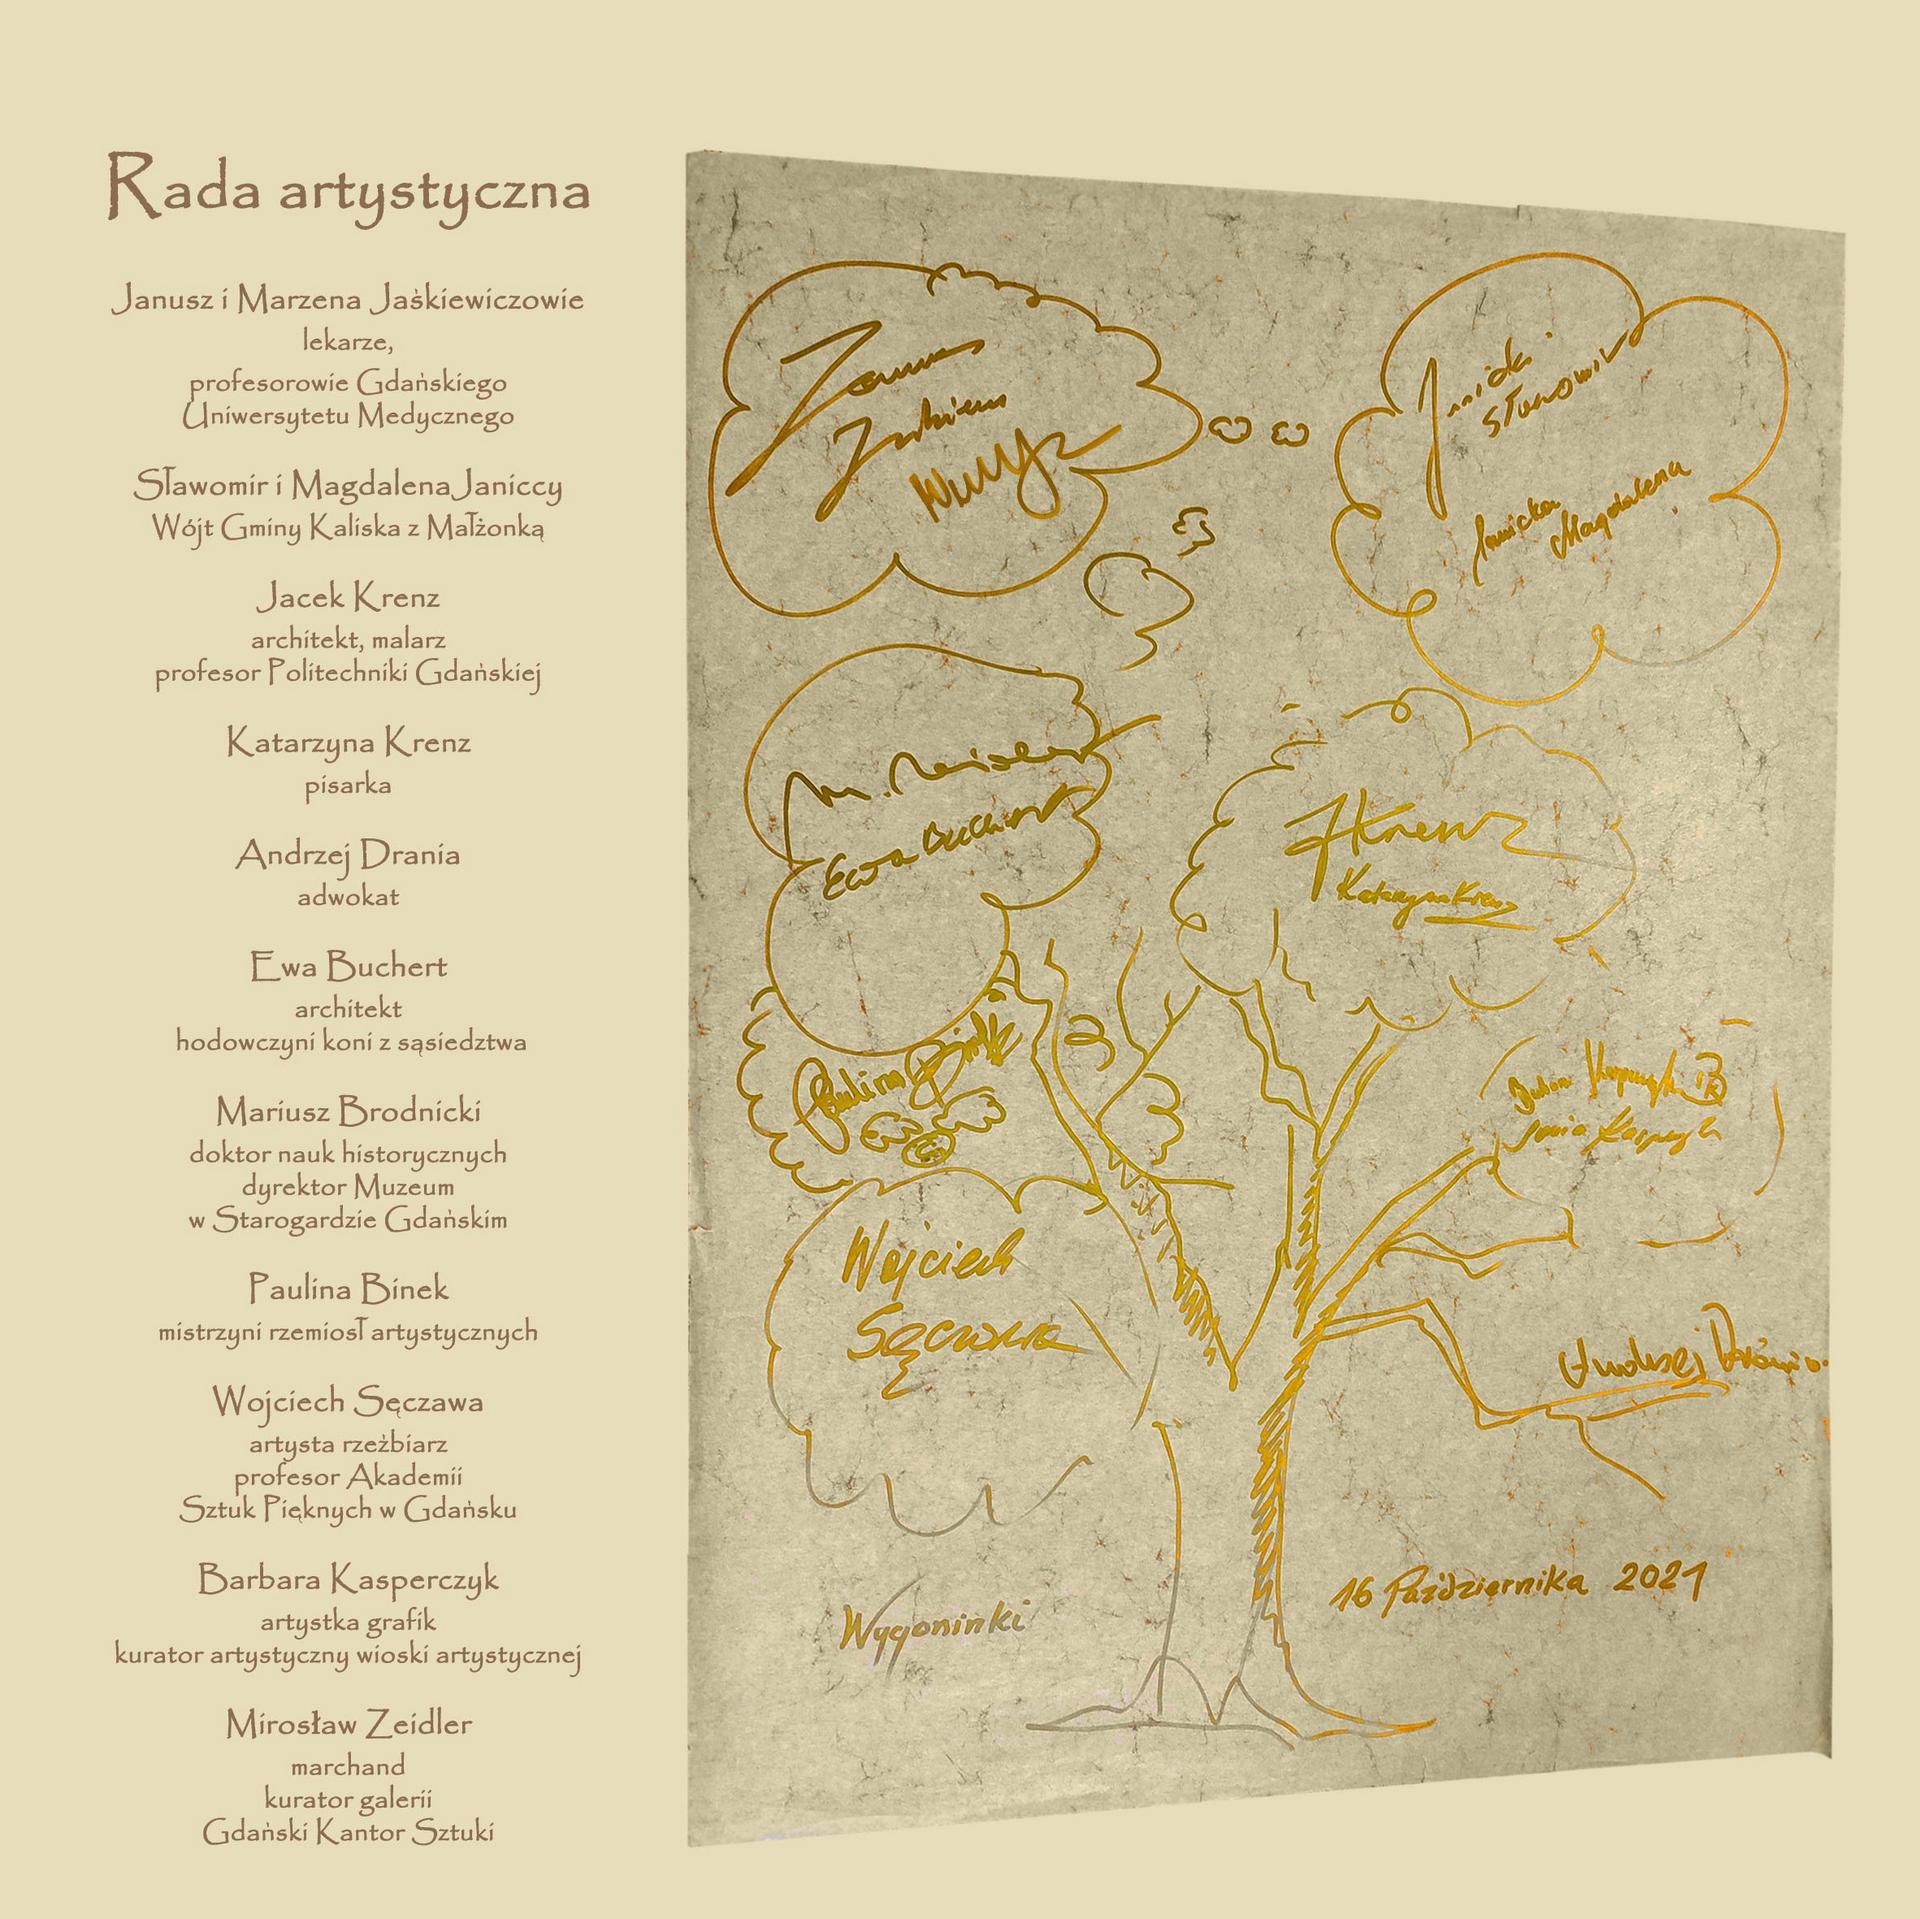 Rada artystyczna
Janusz i Marzena Jaśkiewiczowie
lekarze,
profesorowie Gdańskiego
Uniwersytetu Medycznego
Sławomir i Magdalena Janiccy
Wójt Gminy Kaliska z Małżonką
Jacek Krenz
architekt, malarz
profesor Politechniki Gdańskiej
Katarzyna Krenz
pisarka
Andrzej Drania
adwokat
Ewa Buchert
architekt
hodowczyni koni z sąsiedztwa
Mariusz Brodnicki
doktor nauk historycznych
dyrektor Muzeum
w Starogardzie Gdańskim
Paulina Binek
mistrzyni rzemiosł artystycznych
Wojciech Sęczawa
artysta rzeźbiarz
profesor Akademii
Sztuk Pięknych w Gdańsku
Barbara Kasperczyk
artystka grafik
kurator artystyczny wioski artystycznej
Mirosław Zeidler
marchand
kurator galerii
Gdański Kantor Sztuki
Janicki
Sławomir
Janicka
Magdalena
Ewa Buchert
JKrenz
Katarzyna Krenz
Paulina Binek
Wojciech
Sęczawa
Andrzej Drania
Wygoninki
16 Października 2021